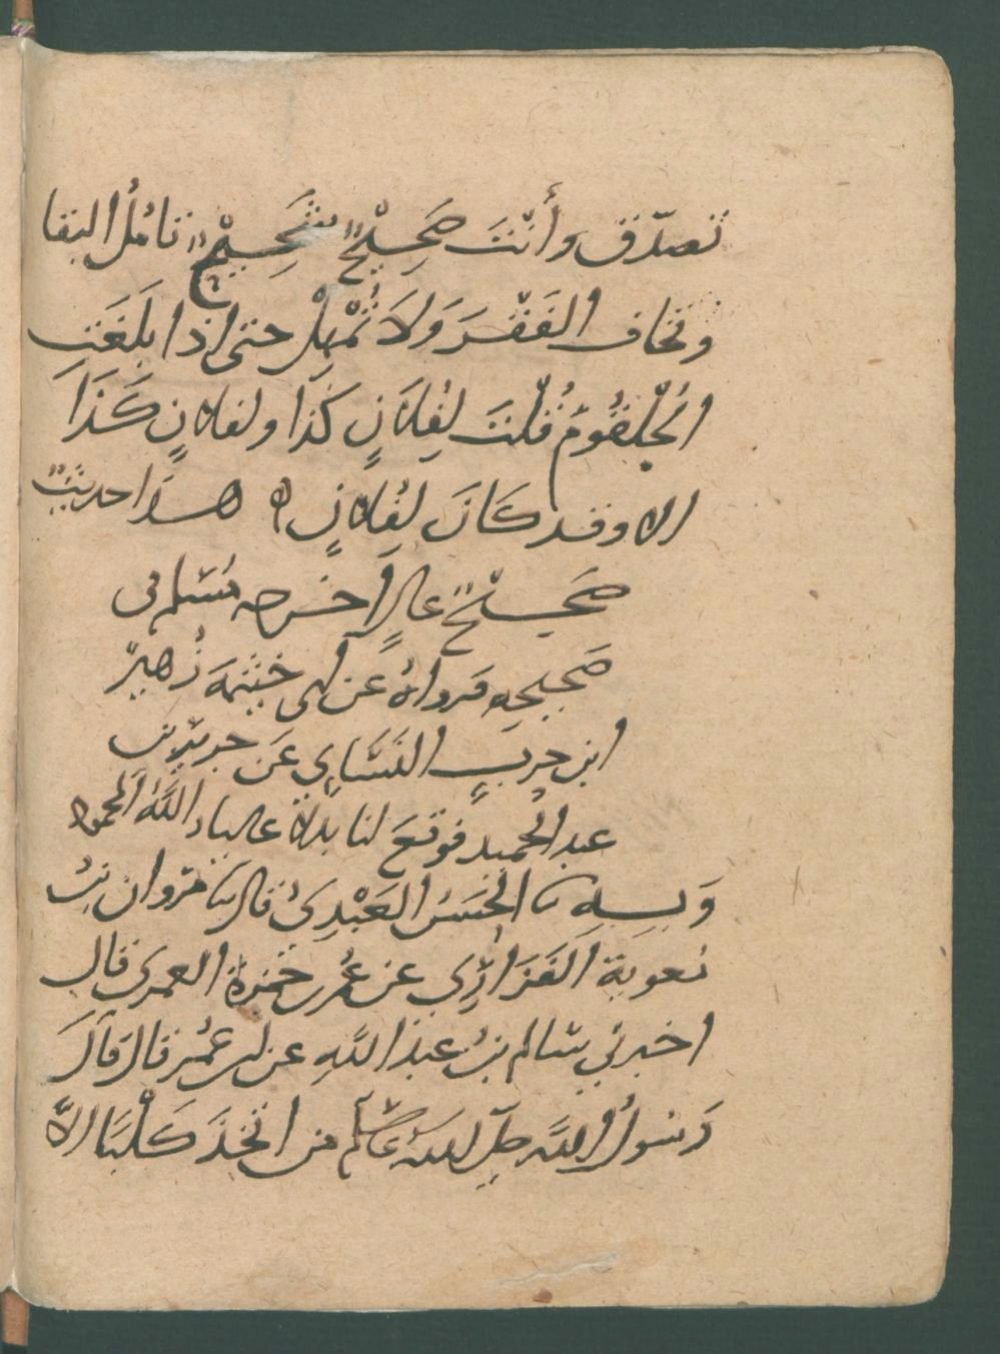 تصدّق وأنْتَ صَحِيْحٌ شَحِيْحٌ تامُلُ البقا
وتخاف الفَقْرَ وَلَا تُمْهِلْ حتى اذا بَلَغَتِ
الحُلْقُومَ قُلْتَ لِفُلَانٍ كَذَا ولفلانٍ كَذَا
الا وقد كَانَ لِفُلَانٍ ه هذا حديثٌ
صَحِيْحٌ عالٍ اخرجه مُسْلم فى
صَحِيحِهِ فرواهُ عَن ابى خَيْثَمَة زُهيرِ
ابن حربٍ النَسَّايِ عَن جريرِ بن
عبد الحُميد فوقعَ لنا بدلا عاليا وللهِ الحمد ه
وَبِهِ نا الحَسَنُ العَبْدِىُّ قال نا مَرْوان بنُ
مُعوية الفَزَارِي عن عُمر بن حَمْزة العمرى قال
اخبرني سَالم بنُ عبد اللَّهِ عن ابن عُمر قال قالَ
رَسُولُ اللَّه صلى الله عليه وسلم من اتخَذ كَلْبًا الاّ